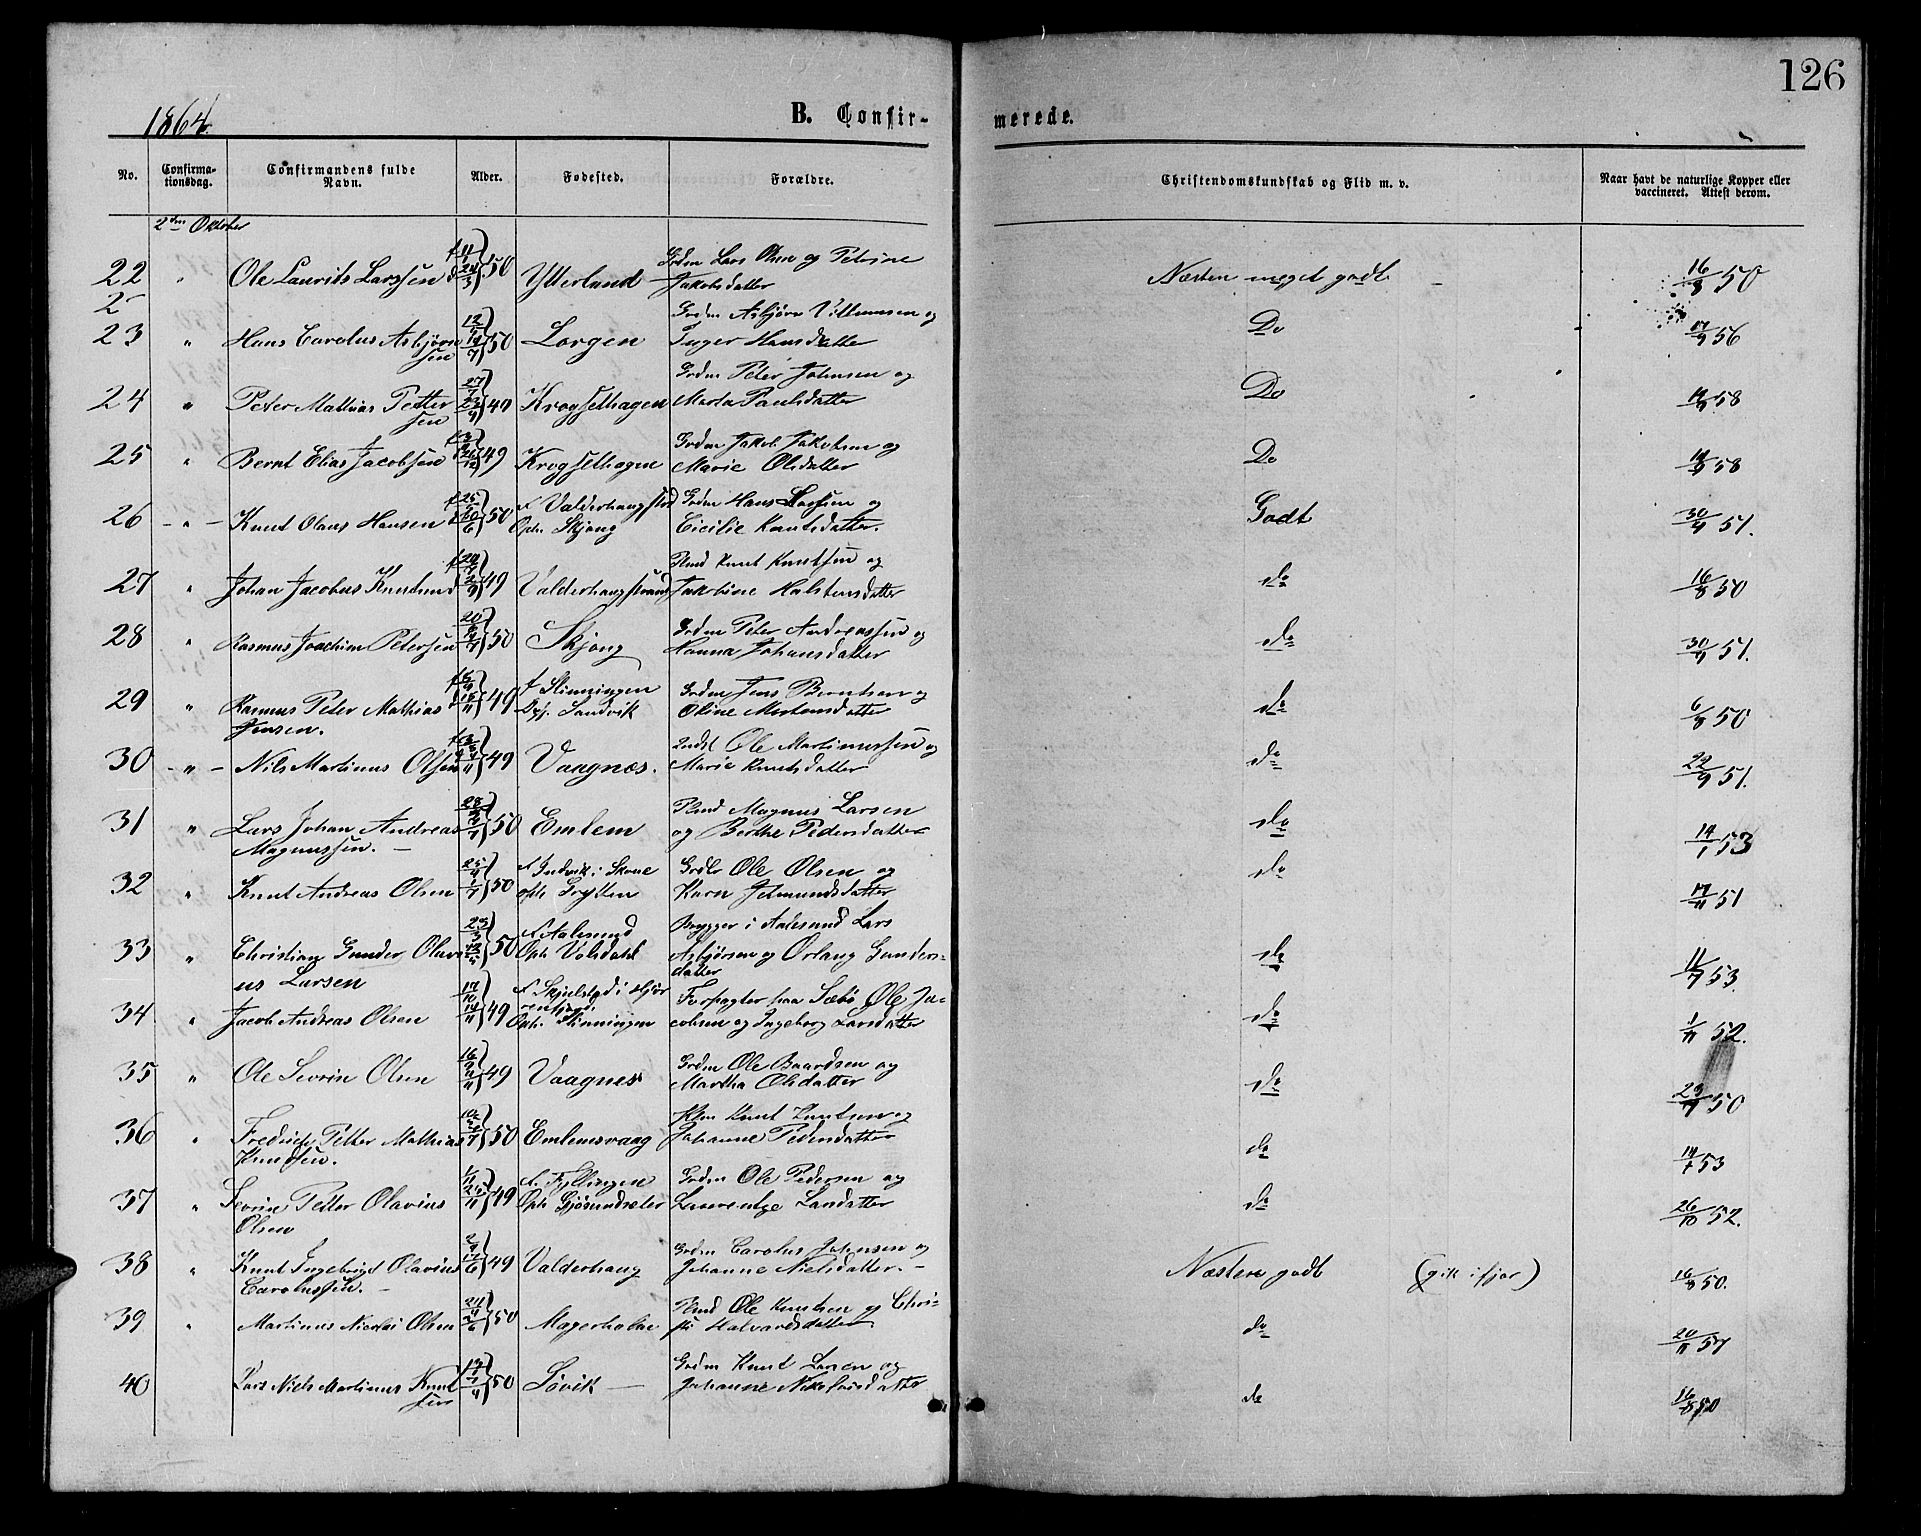 126
1864.
B. Confir-
merede.
No.
Confirma-
tionsdag.
Confirmandens fulde
Navn.
Alder.
Fødested.
Forældre.
Christendomskundskab og Flid m. v.
Naar havt de naturlige Kopper eller
vaccineret. Attest derom.
2den Oktober
22 " Ole Laurits Larssen f 11/1 d 24/3 50 Ytterland Grdm Lars Olsen og Petrine
Jakobsdatter
Næsten meget godt 16/8 50
23 " Hans Carolus Asbjørn
sen 50 Lorgen Grdm Asbjørn Villumsen og
Inger Hansdatter
Do 17/9 56
24 " Peter Mathias Petter
sen 49 Krogsethagen Grdm Peter Johnsen og
Marta Paulsdatter
Do 14/9 58
25 " Bernt Elias Jacobsen 49 Krogsethagen Grdm Jakob Jakobsen og
Marie Olsdatter
Do 14/9 58
26 " Knud Olaus Hansen 50 f Valderhaugstrd
Oph. Skjong
Grdm Hans Larssen og
Cicilie Knutsdatter.
Godt 30/9 51.
27 " Johan Jacobus Knudsen 49 Valderhaugstrand Plmd Knut Knutsen og
Jakobine Halstensdatter
do 16/8 50
28 " Rasmus Joachim Petersen 50 Skjong Grdm Peter Andreassen og
Hanna Johansdatter
do 30/9 51.
29 " Rasmus Peter Mathias
Jensen. 49 f Slinningen
Oph. Sandvik
Grdm Jens Berntsen og
Oline Mortensdatter
do 6/8 50
30 " Nils Martinus Olsen 49 Vaagnæs. Indst Ole Martinussen og
Marie Knutsdatter
do 22/9 51.
31 " Lars Johan Andreas
Magnussen. 50 Emlem Plmd Magnus Larsen
og Berthe Pedersdatter
do 14/1 53
32 " Knut Andreas Olsen 50 f Indvik i Skoue
oph Grytten
Grdbr Ole Olsen og
Karn Jetmundsdatter
do 17/11 51
33 " Christian Gunder Olavi
us Larsen 50 f Aalesund
Oph Volsdahl
Brygger i Aalesund Lars
Asbjørsen og Orlaug Gunders-
datter
do 11/7 53.
34 " Jacob Andreas Olsen 49 f Skjulstad i Hjør
rendfjord.
Oph. Slinningen
Forpagter paa Sæbø Ole Ja-
cobsen og Ingeborg Larsdatter
do 1/11 52.
35 " Ole Severin Olsen 49 Vaagnes Grdm Ole Baardsen og
Martha Olsdatter
do 50
36 " Fredrich Petter Mathias
Knudsen. 50 Emlemsvaag Knut Knutsen og
Johanne Pedersdatter
do 14/1 53
37 " Severin Petter Olavius
Olsen 49 f. Fyllingen
Oph Gjøsundsæter
Grdm Ole Pedersen og
Laurentze Larsdatter
do 26/10 52.
38 " Knut Ingebrigt Olavius
Carolussen. 49 Valderhaug Grdm Carolus Johnsen og
Johanne Nielsdatter.
Næsten godt (gik i fjor) 16/8 50.
39 " Martinus Nicolai Olsen 50 Magerholm Plmd Ole Knutsen og Chri-
sti Halvardsdatter
do 20/11 57
40 Lars Niels Martinus Knut
sen 50 Søvik Grdm Knut Larsen og
Johanne Nikolaisdatter
do 16/8 50